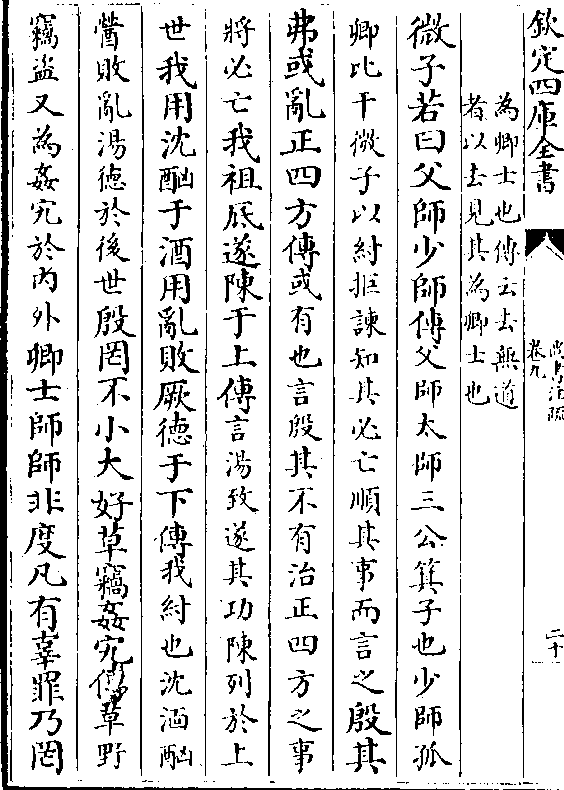 欽定四庫全書
尚書注疏
卷九
二十
為卿士也傳云去無道
者以去見其為卿士也
微子若曰父師少師傳父師太師三公箕子也少師孤
卿比干微子以紂拒諫知其必亡順其事而言之殷其
弗或亂正四方傳或有也言殷其不有治正四方之事
將必亡我祖厎遂陳于上傳言湯致遂其功陳列於上
世我用沈酗于酒用亂敗厥德于下傳我紂也沈湎酗
醟敗亂湯德於後世殷罔不小大好草竊姦宄傳草野
竊盜又為姦宄於內外卿士師師非度凡有辜罪乃罔